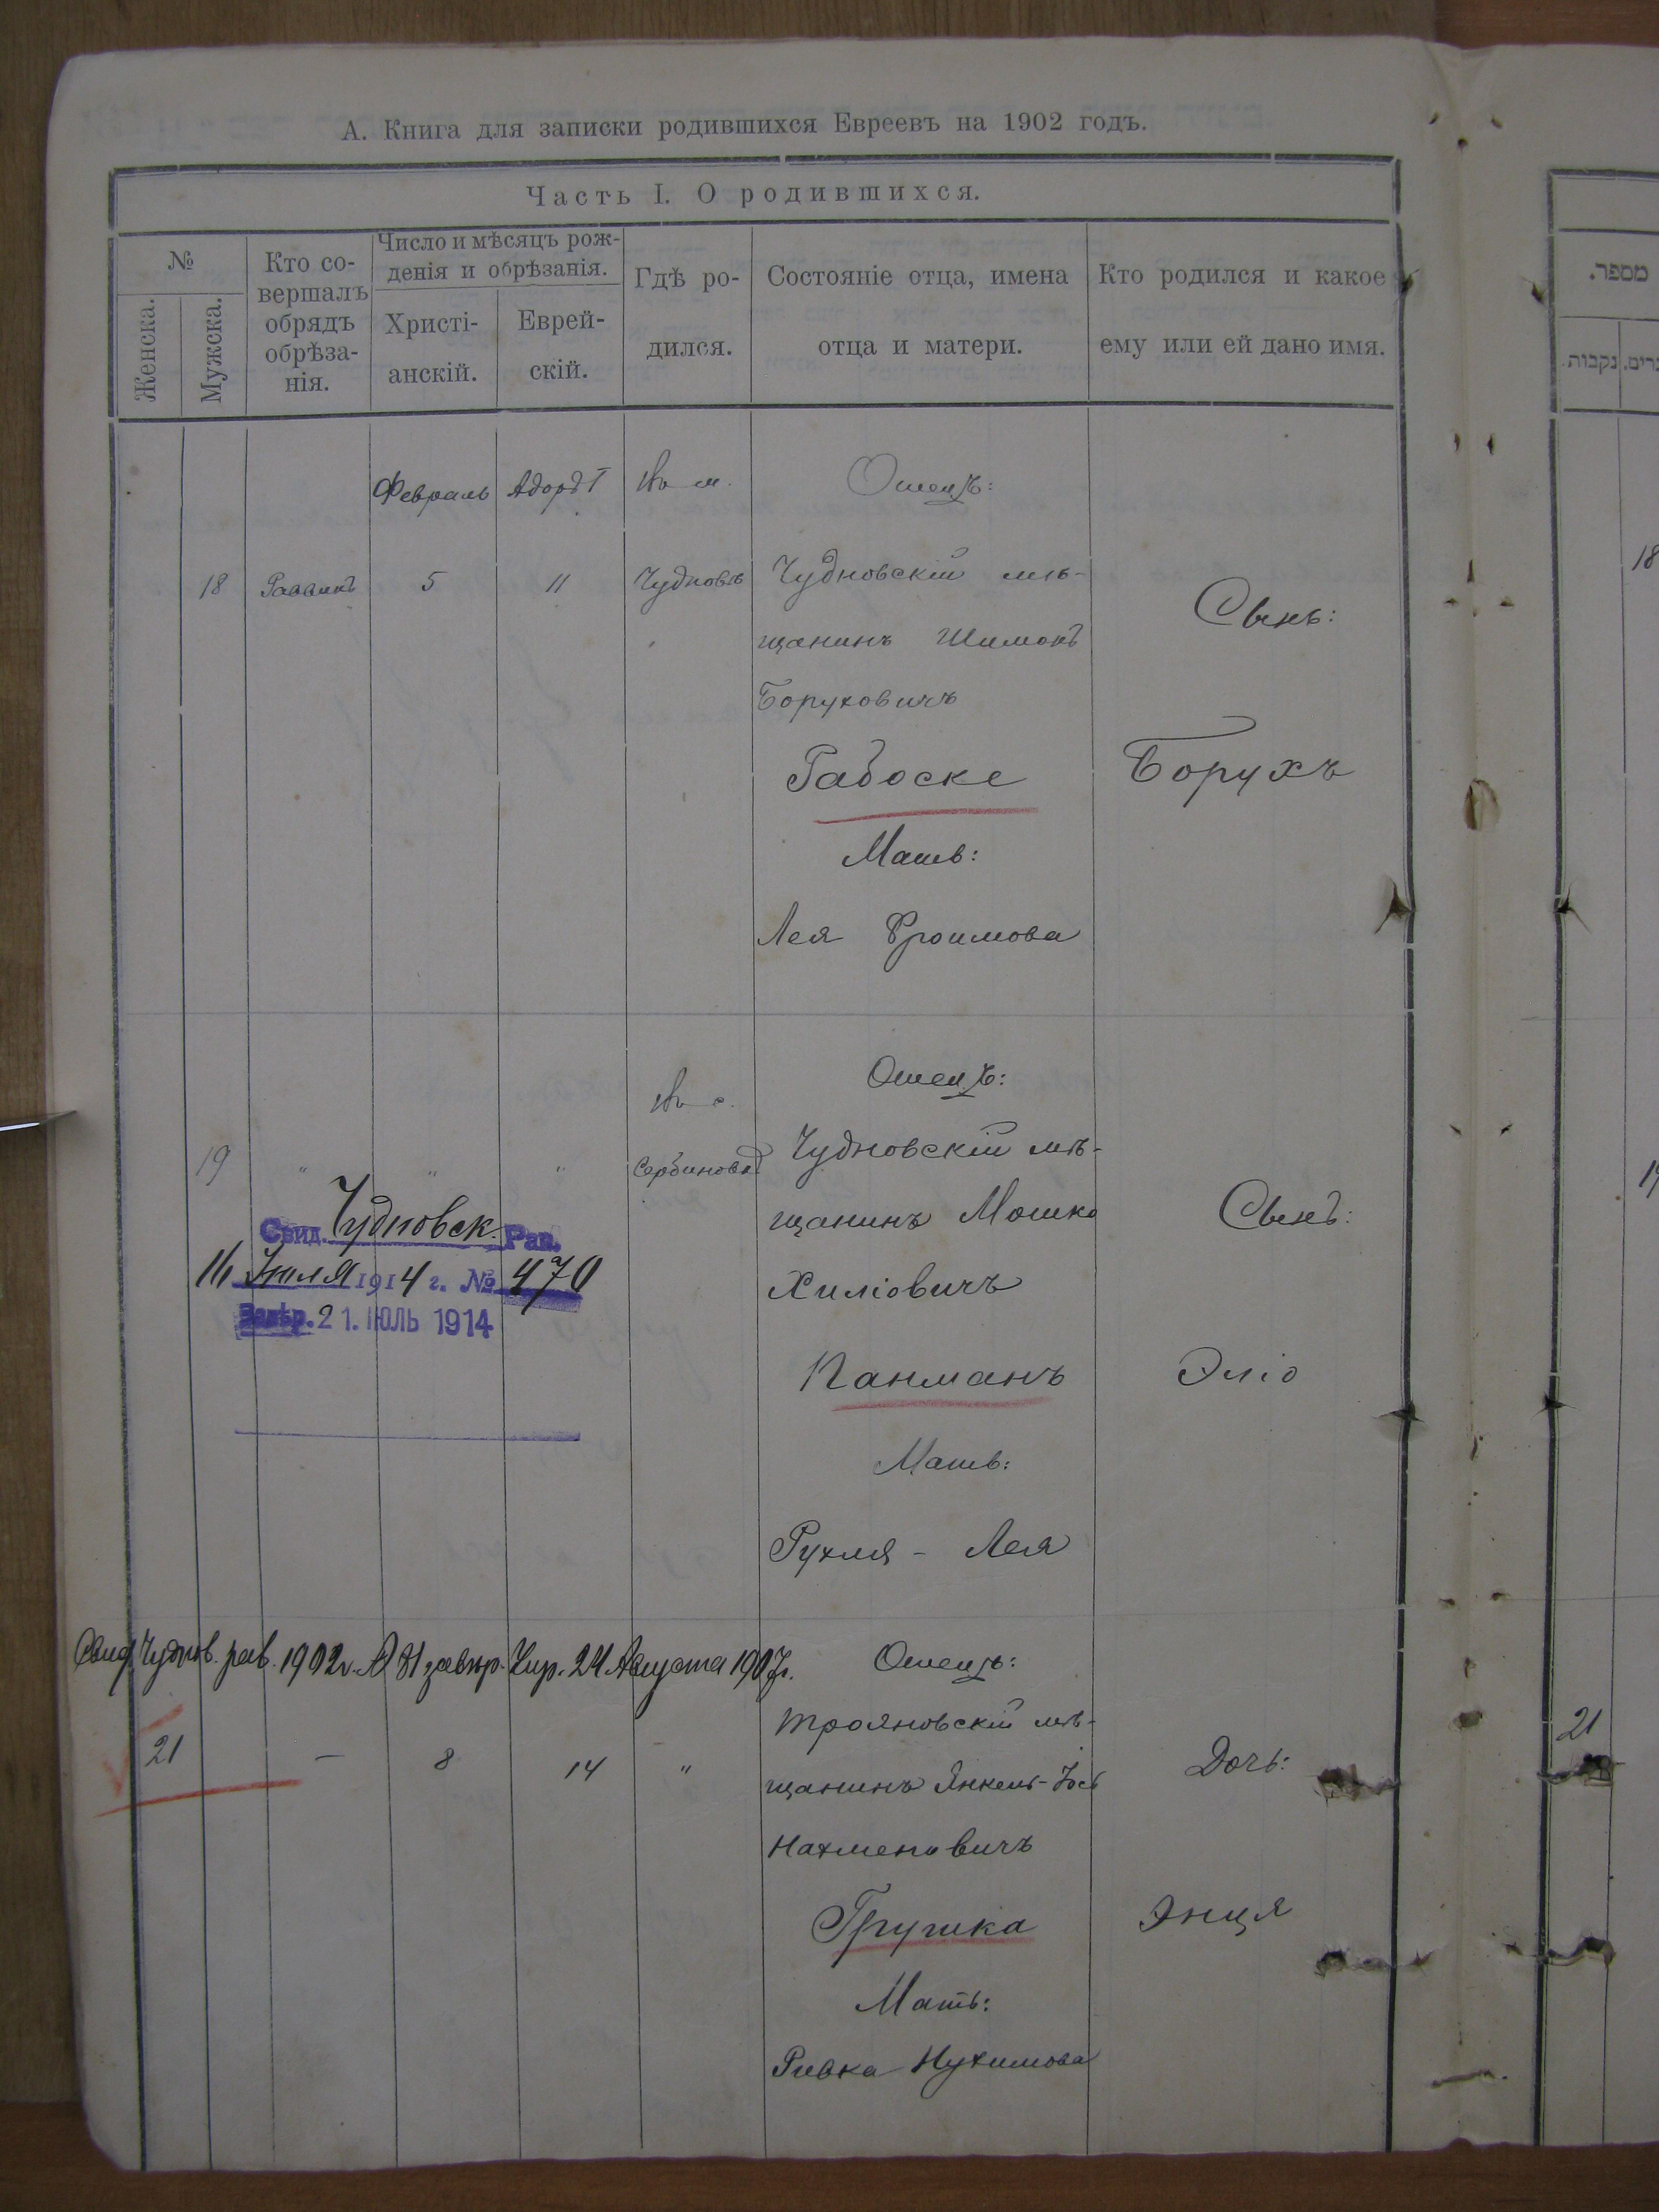 А. Книга для записки родившихся Евреевъ на 1902 годъ.
Часть I. О родившихся.
№
Женска.
Мужска.
Кто со-
вершалъ
обрядъ
обрѣза-
нія.
Число и мѣсяцъ рож-
денія и обрѣзанія.
Христі-
анскій.
Еврей-
скій.
Гдѣ ро-
дился.
Состояніе отца, имена
отца и матери.
Кто родился и какое
ему или ей дано имя.
מספר.
נקבות.
Февраль
Адоръ I
Въ м.
Отецъ:
18
Раввинъ
5
11
Чудновѣ
Чудновскій мѣ-
щанинъ Шимонъ
Боруховичъ
Сынъ:
Габоске
Борухъ
Мать:
Лея Фроимова
18
Отецъ:
Въ с.
19
"
"
"
Сербиновкѣ
Чудновскій мѣ-
щанинъ Мошко
Сынъ:
Свид. Чудновск. Рав.
16 Іюля 1914 г. № 470
Завѣр. 21. ІЮЛЬ 1914
Хиліовичъ
Канманъ
Эліо
Мать:
Рухля - Лея
Свид. Чуднов. рав. 1902 г. № 31 завѣр. Упр. 24 Августа 1907 г.
Отецъ:
21
—
8
14
"
Трояновскій мѣ-
щанинъ Янкель-Іось
Дочь:
Нахменовичъ
Грушка
Энця
Мать:
Ривка Нухимова
21